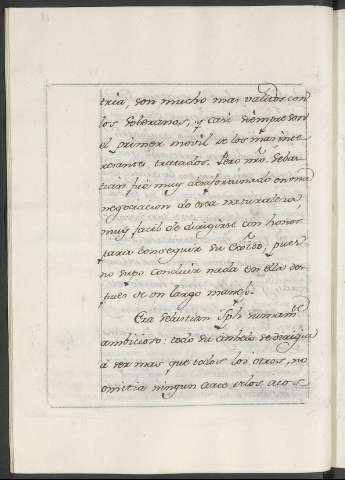 tria, son mucho mas validos con
los soberanos, y casi siempre son
el primer movil de los mas inte-
resantes tratados. Pero nro. Sebas-
tian fué muy desafortunado en una
negociacion de esa naturaleza,
muy facil de dirigirse con honor
para conseguir su exîto; pues
no supo concluir nada en ella des-
pues de un largo manejo.
Era Sebastian Jph sumamte
ambicioso: todo su anhelo se dirigia
á ser mas que todos los otros, no
omitia ningun